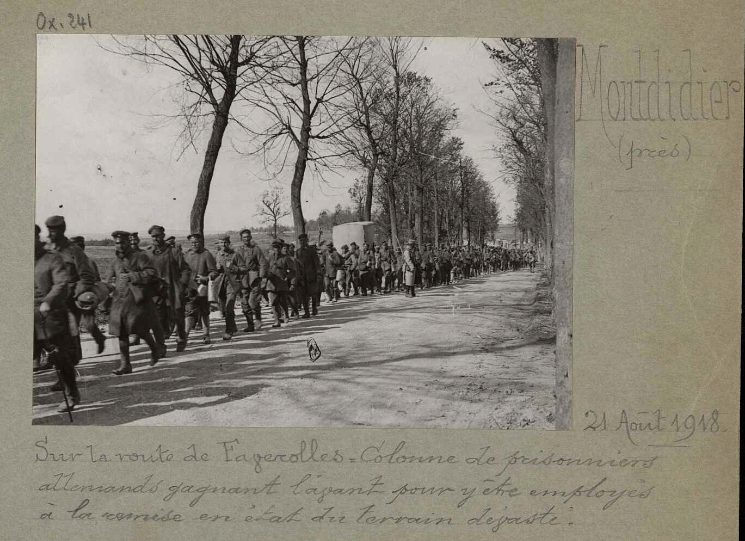 Ox. 241
Montdidier
(près)
21 Août 1918.
Sur la route de Faverolles = Colonne de prisonniers
allemands gagnant l'avant pour y être employés
à la remise en état du terrain dévasté.